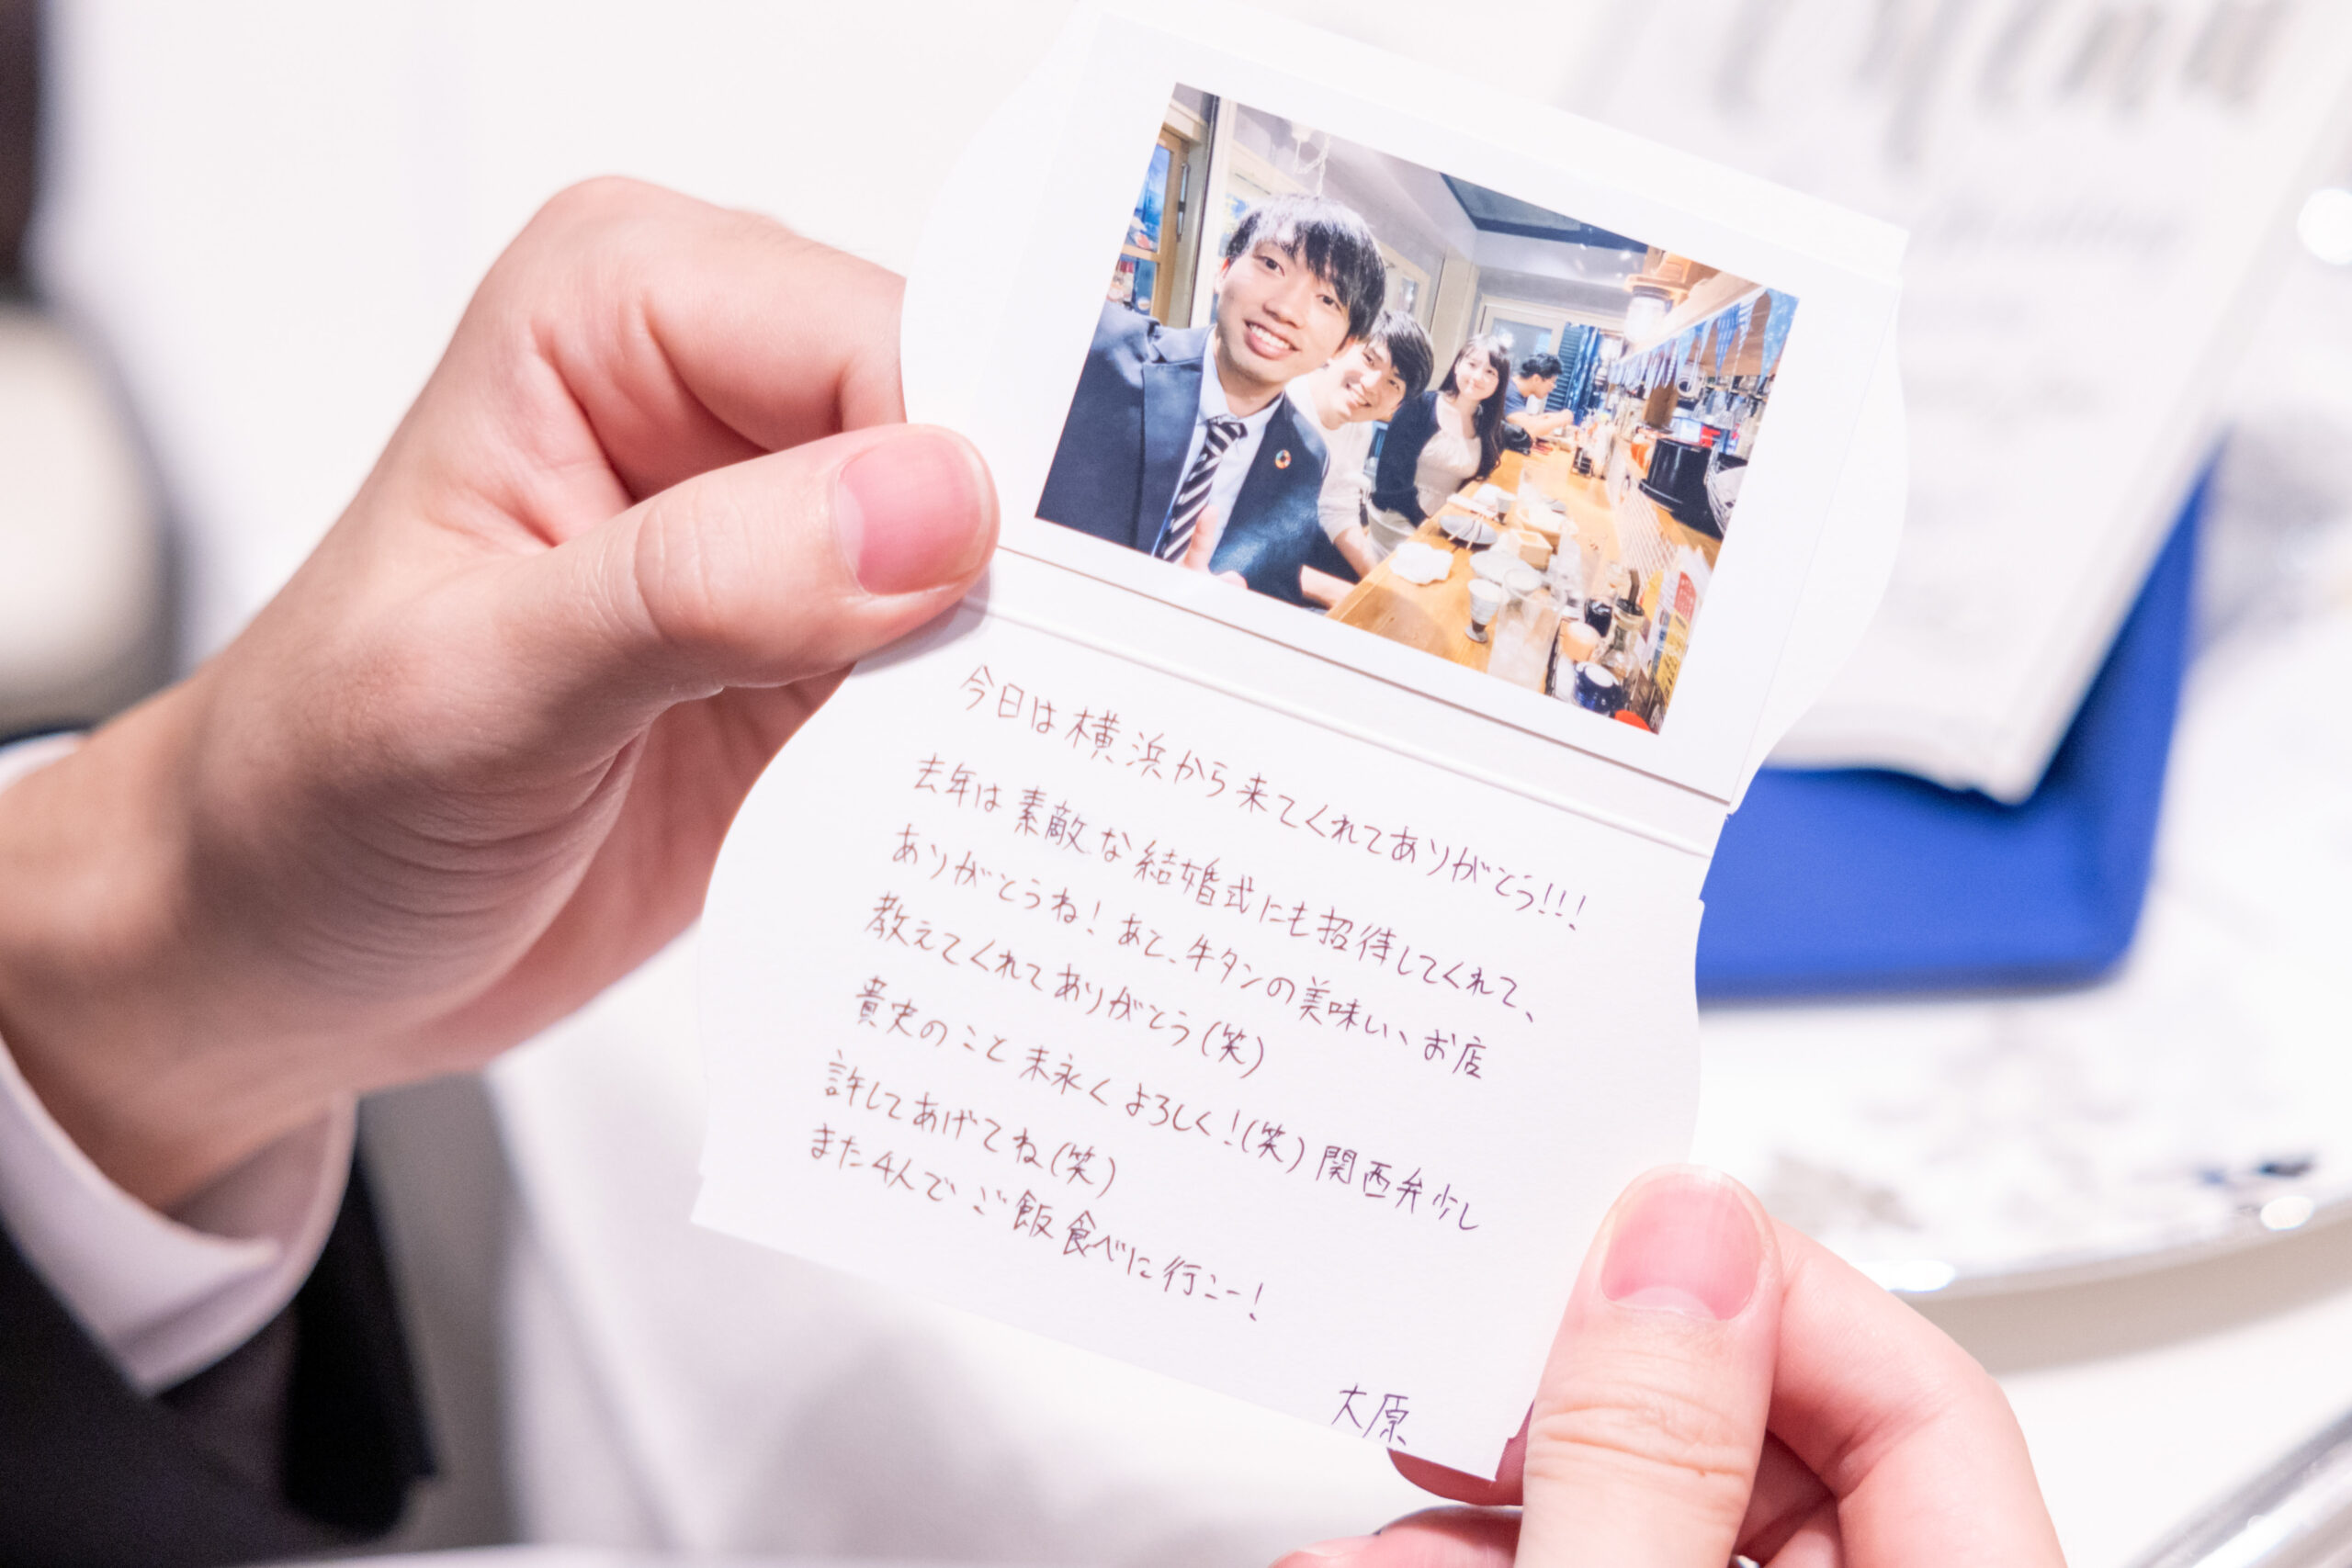 今日は横浜から来てくれてありがとう!!!
去年は素敵な結婚式にも招待してくれて、
ありがとうね! あと、牛タンの美味しいお店
教えてくれてありがとう(笑)
貴史のこと末永くよろしく!(笑) 関西弁少し
許してあげてね(笑)
また4人でご飯食べに行こー!
大原